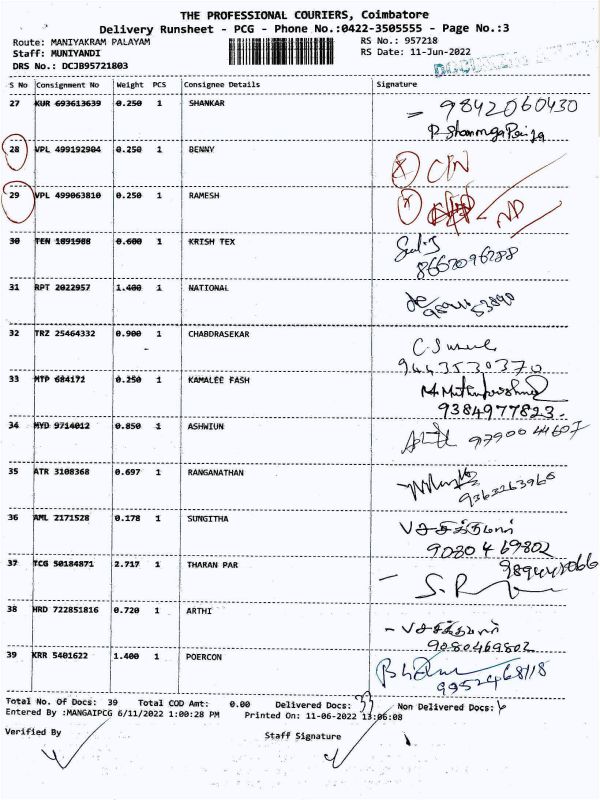 THE PROFESSIONAL COURIERS, Coimbatore
Delivery Runsheet - PCG - Phone No.:0422-3505555 - Page No.:3
Route: MANIYAKRAM PALAYAM RS No.: 957218
Staff: MUNIYANDI RS Date: 11-Jun-2022
DRS No.: DCJB95721803
S No Consignment No Weight PCS Consignee Details Signature
27 KUR 693613639 0.250 1 SHANKAR 9842060430
28 VPL 499192904 0.250 1 BENNY
29 VPL 499063810 0.250 1 RAMESH
30 TEN 1891988 0.600 1 KRISH TEX
31 RPT 2022957 1.400 1 NATIONAL
32 TRZ 25464332 0.900 1 CHABDRASEKAR
9443530370
33 MTP 684172 0.250 1 KAMALEE FASH
9384977823.
34 MYD 9714012 0.850 1 ASHWIUN 9790044607
35 ATR 3108368 0.697 1 RANGANATHAN
9363263960
36 AML 2171528 0.178 1 SUNGITHA
9080469802
37 TCG 50184871 2.717 1 THARAN PAR
38 HRD 722851816 0.720 1 ARTHI
9080469802
39 KRR 5401622 1.400 1 POERCON
9952468118
Total No. Of Docs: 39 Total COD Amt: 0.00 Delivered Docs: 33 Non Delivered Docs: 6
Entered By :MANGAIPCG 6/11/2022 1:00:28 PM Printed On: 11-06-2022 13:06:08
Verified By Staff Signature